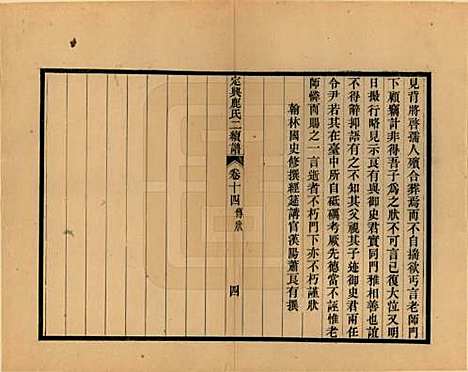 見背將啓孺人殯合葬焉而不自揣欲丐言老師門
下顧竊計非得吾子爲之狀不可言已復大泣又明
日撮行略見示良有與御史君實同門雅相善也誼
不得解抑語有之不知其父視其子迹御史君
令尹若其在臺中所自砥礪考厥先德當不誣惟老
師憐而賜之一言逝者不朽門下亦不朽謹狀
翰林國史修撰經筵講官漢陽蕭良有撰
定興鹿氏二續譜
卷十四
傳狀
四